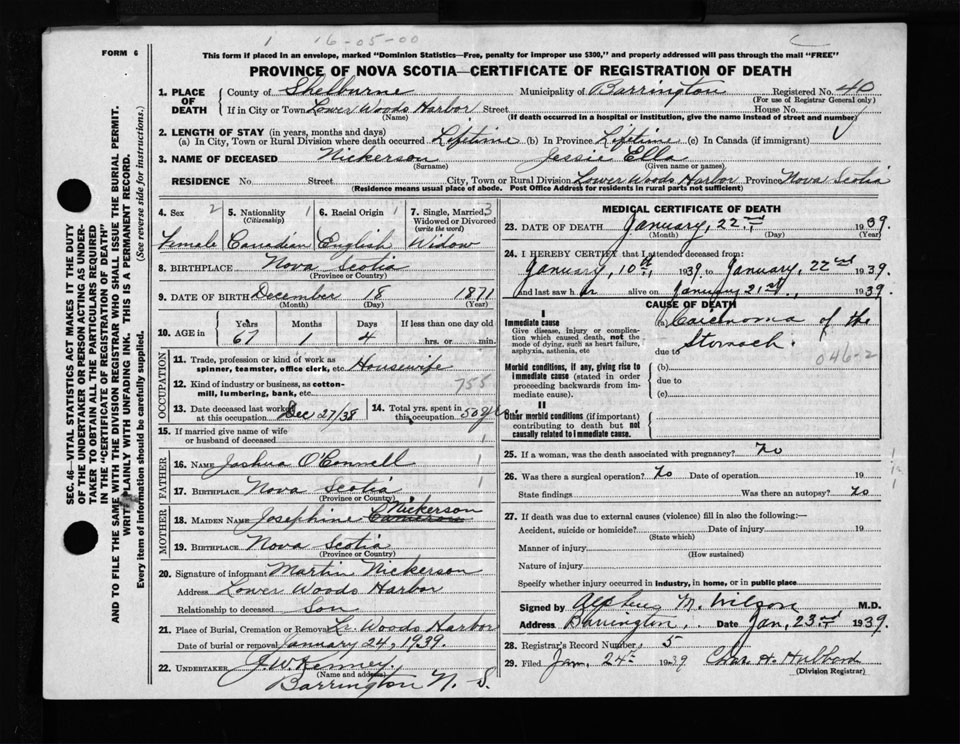 1 16-05-00 C
FORM 6
This form if placed in an envelope, marked "Dominion Statistics—Free, penalty for improper use $300," and properly addressed will pass through the mail "FREE"
PROVINCE OF NOVA SCOTIA—CERTIFICATE OF REGISTRATION OF DEATH
1. PLACE OF DEATH County of Shelburne Municipality of Barrington Registered No. 40
(For use of Registrar General only)
If in City or Town Lower Woods Harbor Street House No.
(Name) (If death occurred in a hospital or institution, give the name instead of street and number)
2. LENGTH OF STAY (in years, months and days)
(a) In City, Town or Rural Division where death occurred Lifetime (b) In Province Lifetime (c) In Canada (if immigrant)
3. NAME OF DECEASED Nickerson Jessie Ella
(Surname) (Given name or names)
RESIDENCE No. Street City, Town or Rural Division Lower Woods Harbor Province Nova Scotia
(Residence means usual place of abode. Post Office Address for residents in rural parts not sufficient)
4. Sex 2 5. Nationality 1 6. Racial Origin 1 7. Single, Married, 3
(Citizenship) Widowed or Divorced
(write the word)
Female Canadian English Widow
8. BIRTHPLACE Nova Scotia
(Province or Country)
9. DATE OF BIRTH December 18 1871
(Month) (Day) (Year)
10. AGE in Years Months Days If less than one day old
67 1 4 hrs. or min.
OCCUPATION
11. Trade, profession or kind of work as
spinner, teamster, office clerk, etc. Housewife
12. Kind of industry or business, as cotton- 755
mill, lumbering, bank, etc.
13. Date deceased last worked at this occupation Dec 27/38 14. Total yrs. spent in this occupation 50 yrs
15. If married give name of wife
or husband of deceased 1
FATHER
16. NAME Joshua O'Connell 1
17. BIRTHPLACE Nova Scotia 1
(Province or Country)
MOTHER
Nickerson
18. MAIDEN NAME Josephine Cameron
19. BIRTHPLACE Nova Scotia
(Province or Country)
20. Signature of informant Martin Nickerson
Address Lower Woods Harbor
Relationship to deceased Son
21. Place of Burial, Cremation or Removal Lr. Woods Harbor
Date of burial or removal January 24, 1939.
22. UNDERTAKER J. W. Kenney.
(Name and address)
Barrington N. S.
MEDICAL CERTIFICATE OF DEATH
23. DATE OF DEATH January, 22nd 1939.
(Month) (Day) (Year)
24. I HEREBY CERTIFY that I attended deceased from:
January, 10th, 1939 to January, 22nd 1939.
and last saw her alive on January 21st, 1939.
CAUSE OF DEATH
I
Immediate cause (a) Carcinoma of the
Give disease, injury or complication which caused death, not the mode of dying, such as heart failure, asphyxia, asthenia, etc
Stomach.
due to 046-2
Morbid conditions, if any, giving rise to immediate cause (stated in order proceeding backwards from immediate cause).
(b)
due to
(c)
II
Other morbid conditions (if important) contributing to death but not causally related to immediate cause.
25. If a woman, was the death associated with pregnancy? No
26. Was there a surgical operation? No Date of operation 19
State findings Was there an autopsy? No
27. If death was due to external causes (violence) fill in also the following:—
Accident, suicide or homicide? Date of injury 19
(State which)
Manner of injury
(How sustained)
Nature of injury
Specify whether injury occurred in industry, in home, or in public place
Signed by Alpheus M. Wilson M.D.
Address Barrington, Date Jan, 23rd 1939.
28. Registrar's Record Number 5
29. Filed Jan, 24th 1939 Chas. H. Hubbard
(Division Registrar)
SEC. 46—VITAL STATISTICS ACT MAKES IT THE DUTY
OF THE UNDERTAKER OR PERSON ACTING AS UNDER-
TAKER TO OBTAIN ALL THE PARTICULARS REQUIRED
IN THE "CERTIFICATE OF REGISTRATION OF DEATH"
AND TO FILE THE SAME WITH THE DIVISION REGISTRAR WHO SHALL ISSUE THE BURIAL PERMIT.
WRITE PLAINLY WITH UNFADING INK. THIS IS A PERMANENT RECORD.
Every item of information should be carefully supplied. (See reverse side for instructions.)